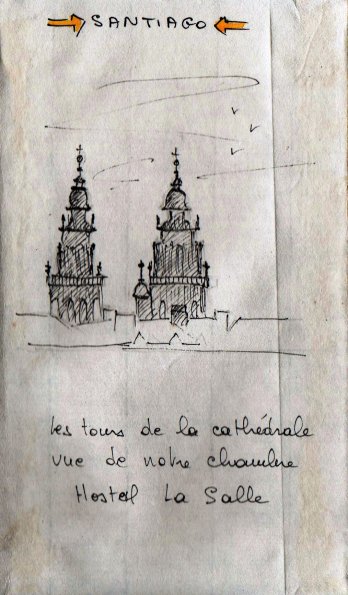 SANTIAGO
Les tours de la cathédrale
vue de notre chambre
Hostal La Salle